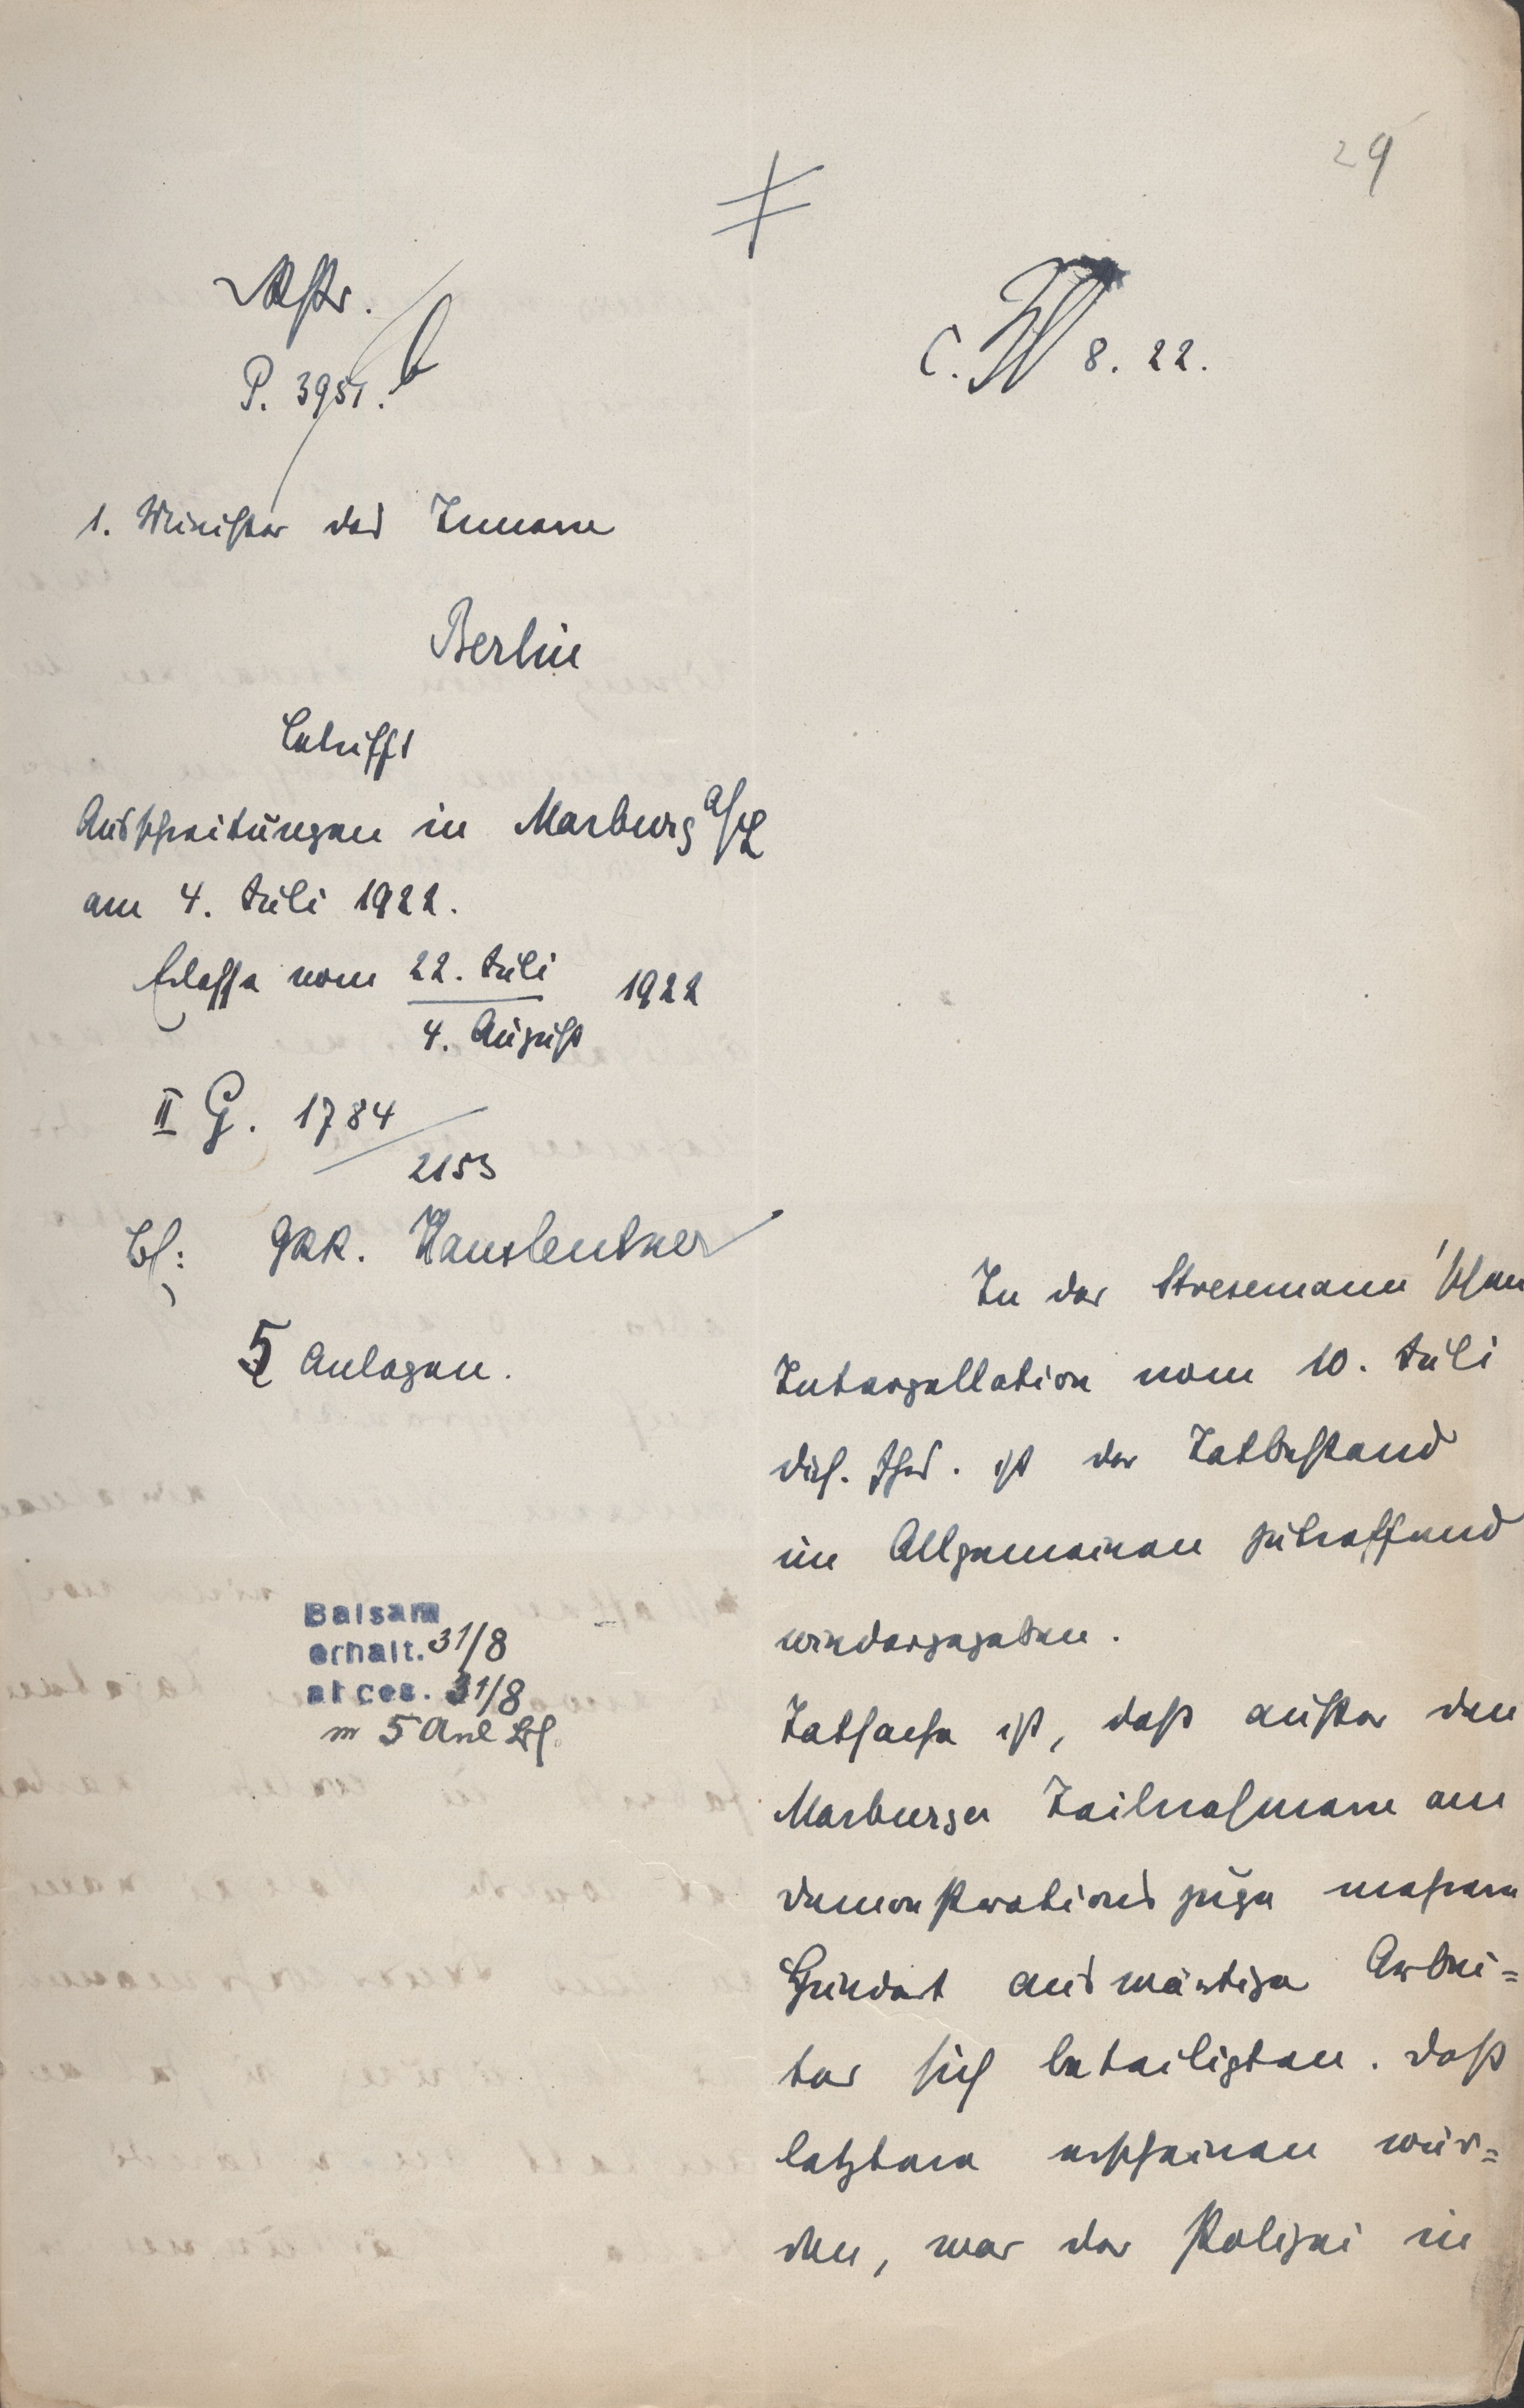 29
P. 3951.
C. 8. 22.
1. Minister des Innern
Berlin
betrifft
Ausschreitungen in Marburg a/L
am 4. Juli 1922.
Erlasse vom 22. Juli 1922
4. August
II G. 1784
2153
Bf:
5 Anlagen.
Balsam
erhalt. 31/8
abges. 31/8
m 5 Anl Bf.
In der Stresemann'schen
Interpellation vom 10. Juli
dss. Jhrs. ist der Tatbestand
im Allgemeinen zutreffend
wiedergegeben.
Tatsache ist, daß außer den
Marburger Teilnehmern am
Demonstrationszuge mehrere
Hundert auswärtige Arbei=
ter sich beteiligten. Daß
letztere erscheinen wür=
den, war der Polizei in